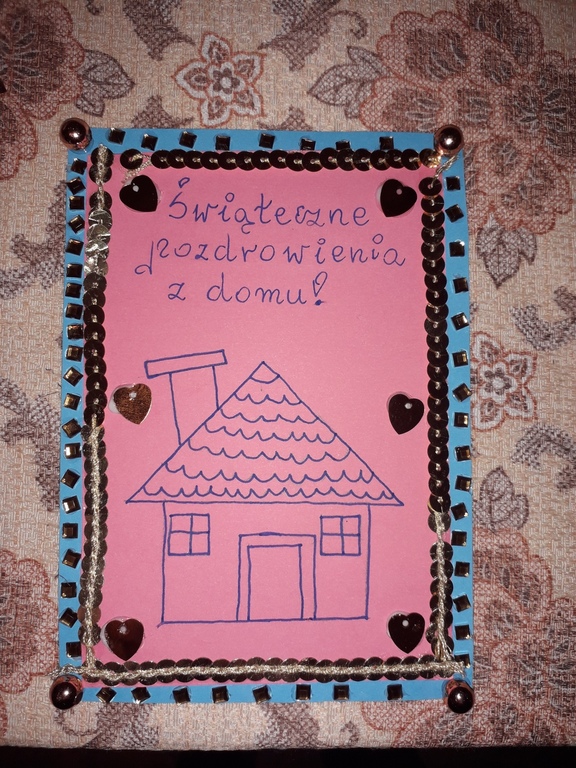 Świąteczne
pozdrowienia
z domu!